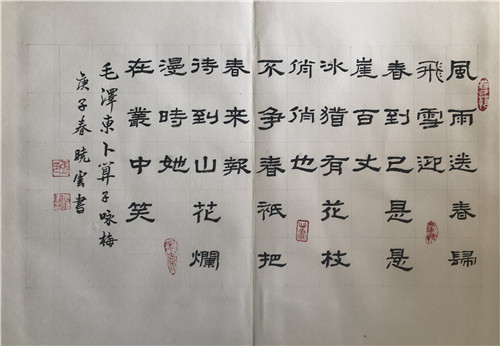 風雨送春歸
飛雪迎
春到已是悬
崖百丈
冰猶有花枝
俏俏也
不争春衹把
春来報
待到山花爛
漫時她
在叢中笑
毛澤東卜算子咏梅
庚子春晓雲書